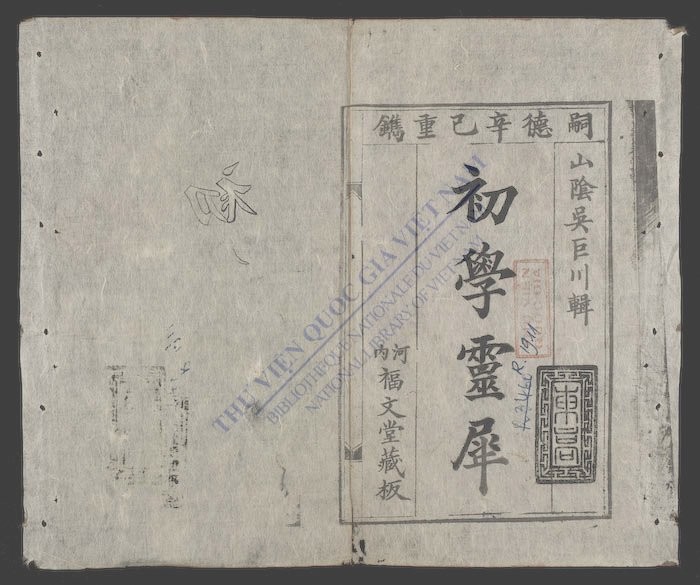 嗣德辛巳重鐫
山陰吳巨川輯
初學靈犀
河內
福文堂藏板
R.1911
THƯ VIỆN QUỐC GIA VIỆT NAM
BIBLIOTHÈQUE NATIONALE DU VIET NAM
NATIONAL LIBRARY OF VIETNAM